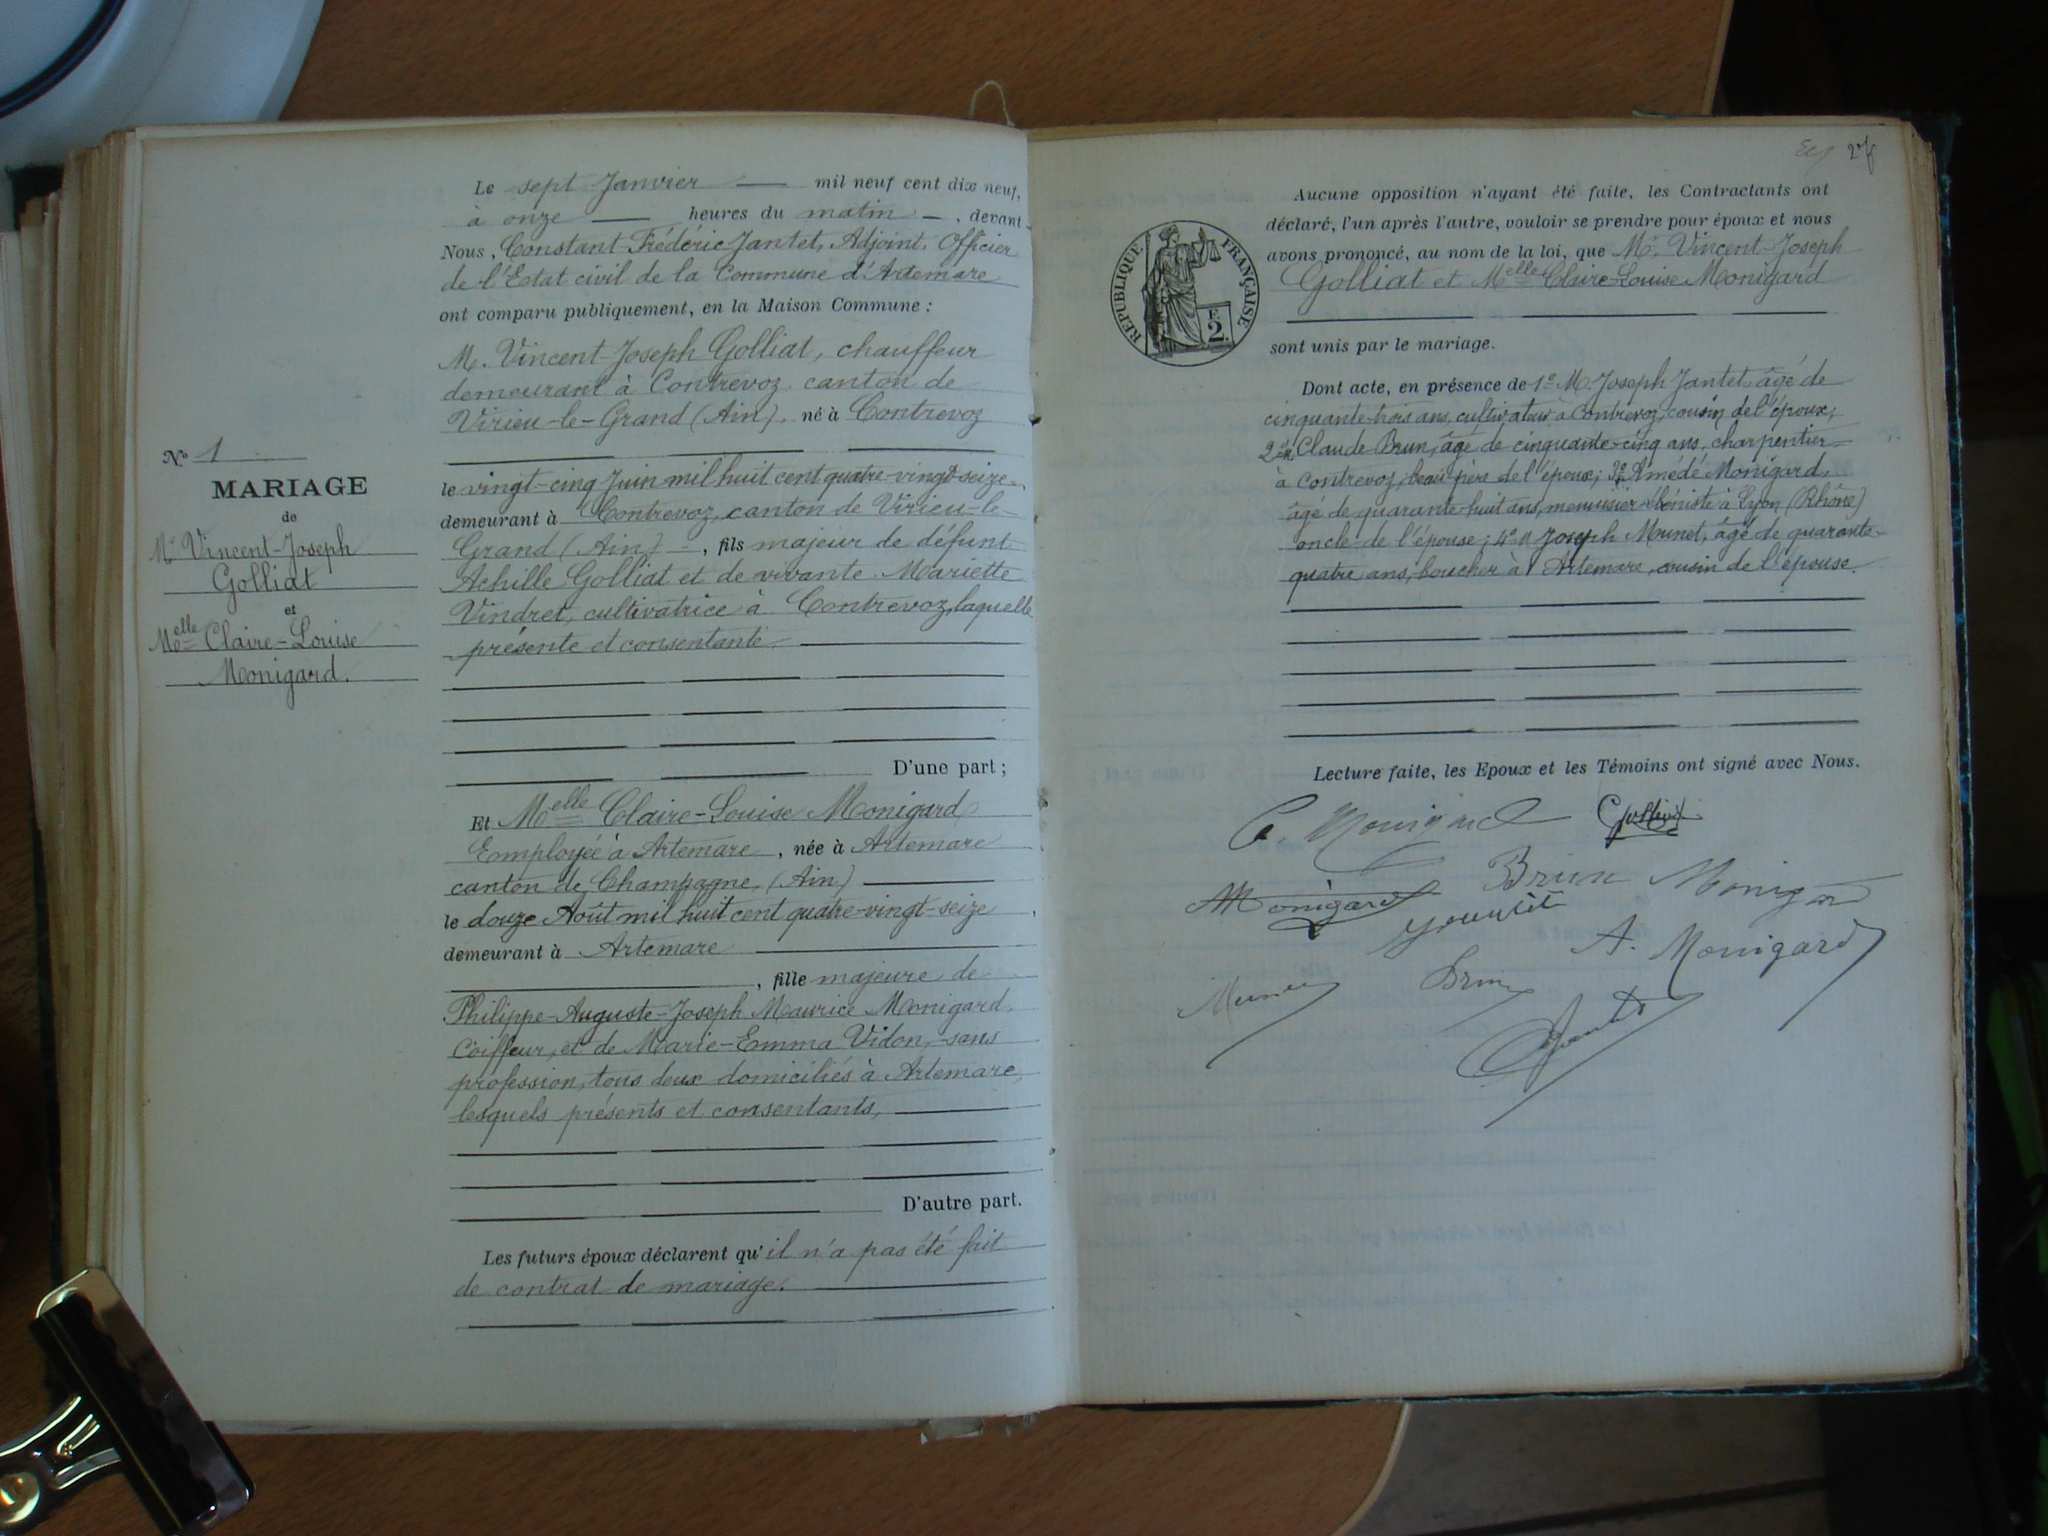 Nº 1
MARIAGE
de
Mr Vincent-Joseph
Golliat
et
Melle Claire-Louise
Monigard.
Le sept Janvier mil neuf cent dix neuf,
à onze heures du matin, devant
Nous, Constant Frédéric Jantet, Adjoint, Officier
de l'Etat civil de la Commune d'Artemare
ont comparu publiquement, en la Maison Commune :
M. Vincent Joseph Golliat, chauffeur
demeurant à Contrevoz, canton de
Virieu-le-Grand (Ain), né à Contrevoz
le vingt-cinq Juin mil huit cent quatre-vingt-seize,
demeurant à Contrevoz, canton de Virieu-le-
Grand (Ain) -, fils majeur de défunt
Achille Golliat et de vivante Mariette
Vindret, cultivatrice à Contrevoz, laquelle
présente et consentante.
D'une part ;
Et Melle Claire-Louise Monigard
Employée à Artemare, née à Artemare
canton de Champagne, (Ain)
le douze Août mil huit cent quatre-vingt-seize,
demeurant à Artemare
, fille majeure de
Philippe-Auguste-Joseph Maurice Monigard,
Coiffeur, et de Marie-Emma Vidon, sans
profession, tous deux domiciliés à Artemare,
lesquels présents et consentants,
D'autre part.
Les futurs époux déclarent qu'il n'a pas été fait
de contrat de mariage.
27
Aucune opposition n'ayant été faite, les Contractants ont
déclaré, l'un après l'autre, vouloir se prendre pour époux et nous
avons prononcé, au nom de la loi, que Mr. Vincent-Joseph
Golliat et Melle Claire-Louise Monigard
RÉPUBLIQUE FRANÇAISE
E
2.
sont unis par le mariage.
Dont acte, en présence de 1º M. Joseph Jantet, âgé de
cinquante-trois ans, cultivateur à Contrevoz, cousin de l'époux;
2º Claude Brun, âgé de cinquante-cinq ans, charpentier
à Contrevoz, beau père de l'époux; 3º Amédé Monigard,
âgé de quarante-huit ans, menuisier-ébéniste à Lyon (Rhône)
oncle de l'épouse; 4º Joseph Munet, âgé de quarante-
quatre ans, boucher à Artemare, cousin de l'épouse.
Lecture faite, les Epoux et les Témoins ont signé avec Nous.
C. Monigard Golliat
Monigard Brun Monigard
A. Monigard
Brun